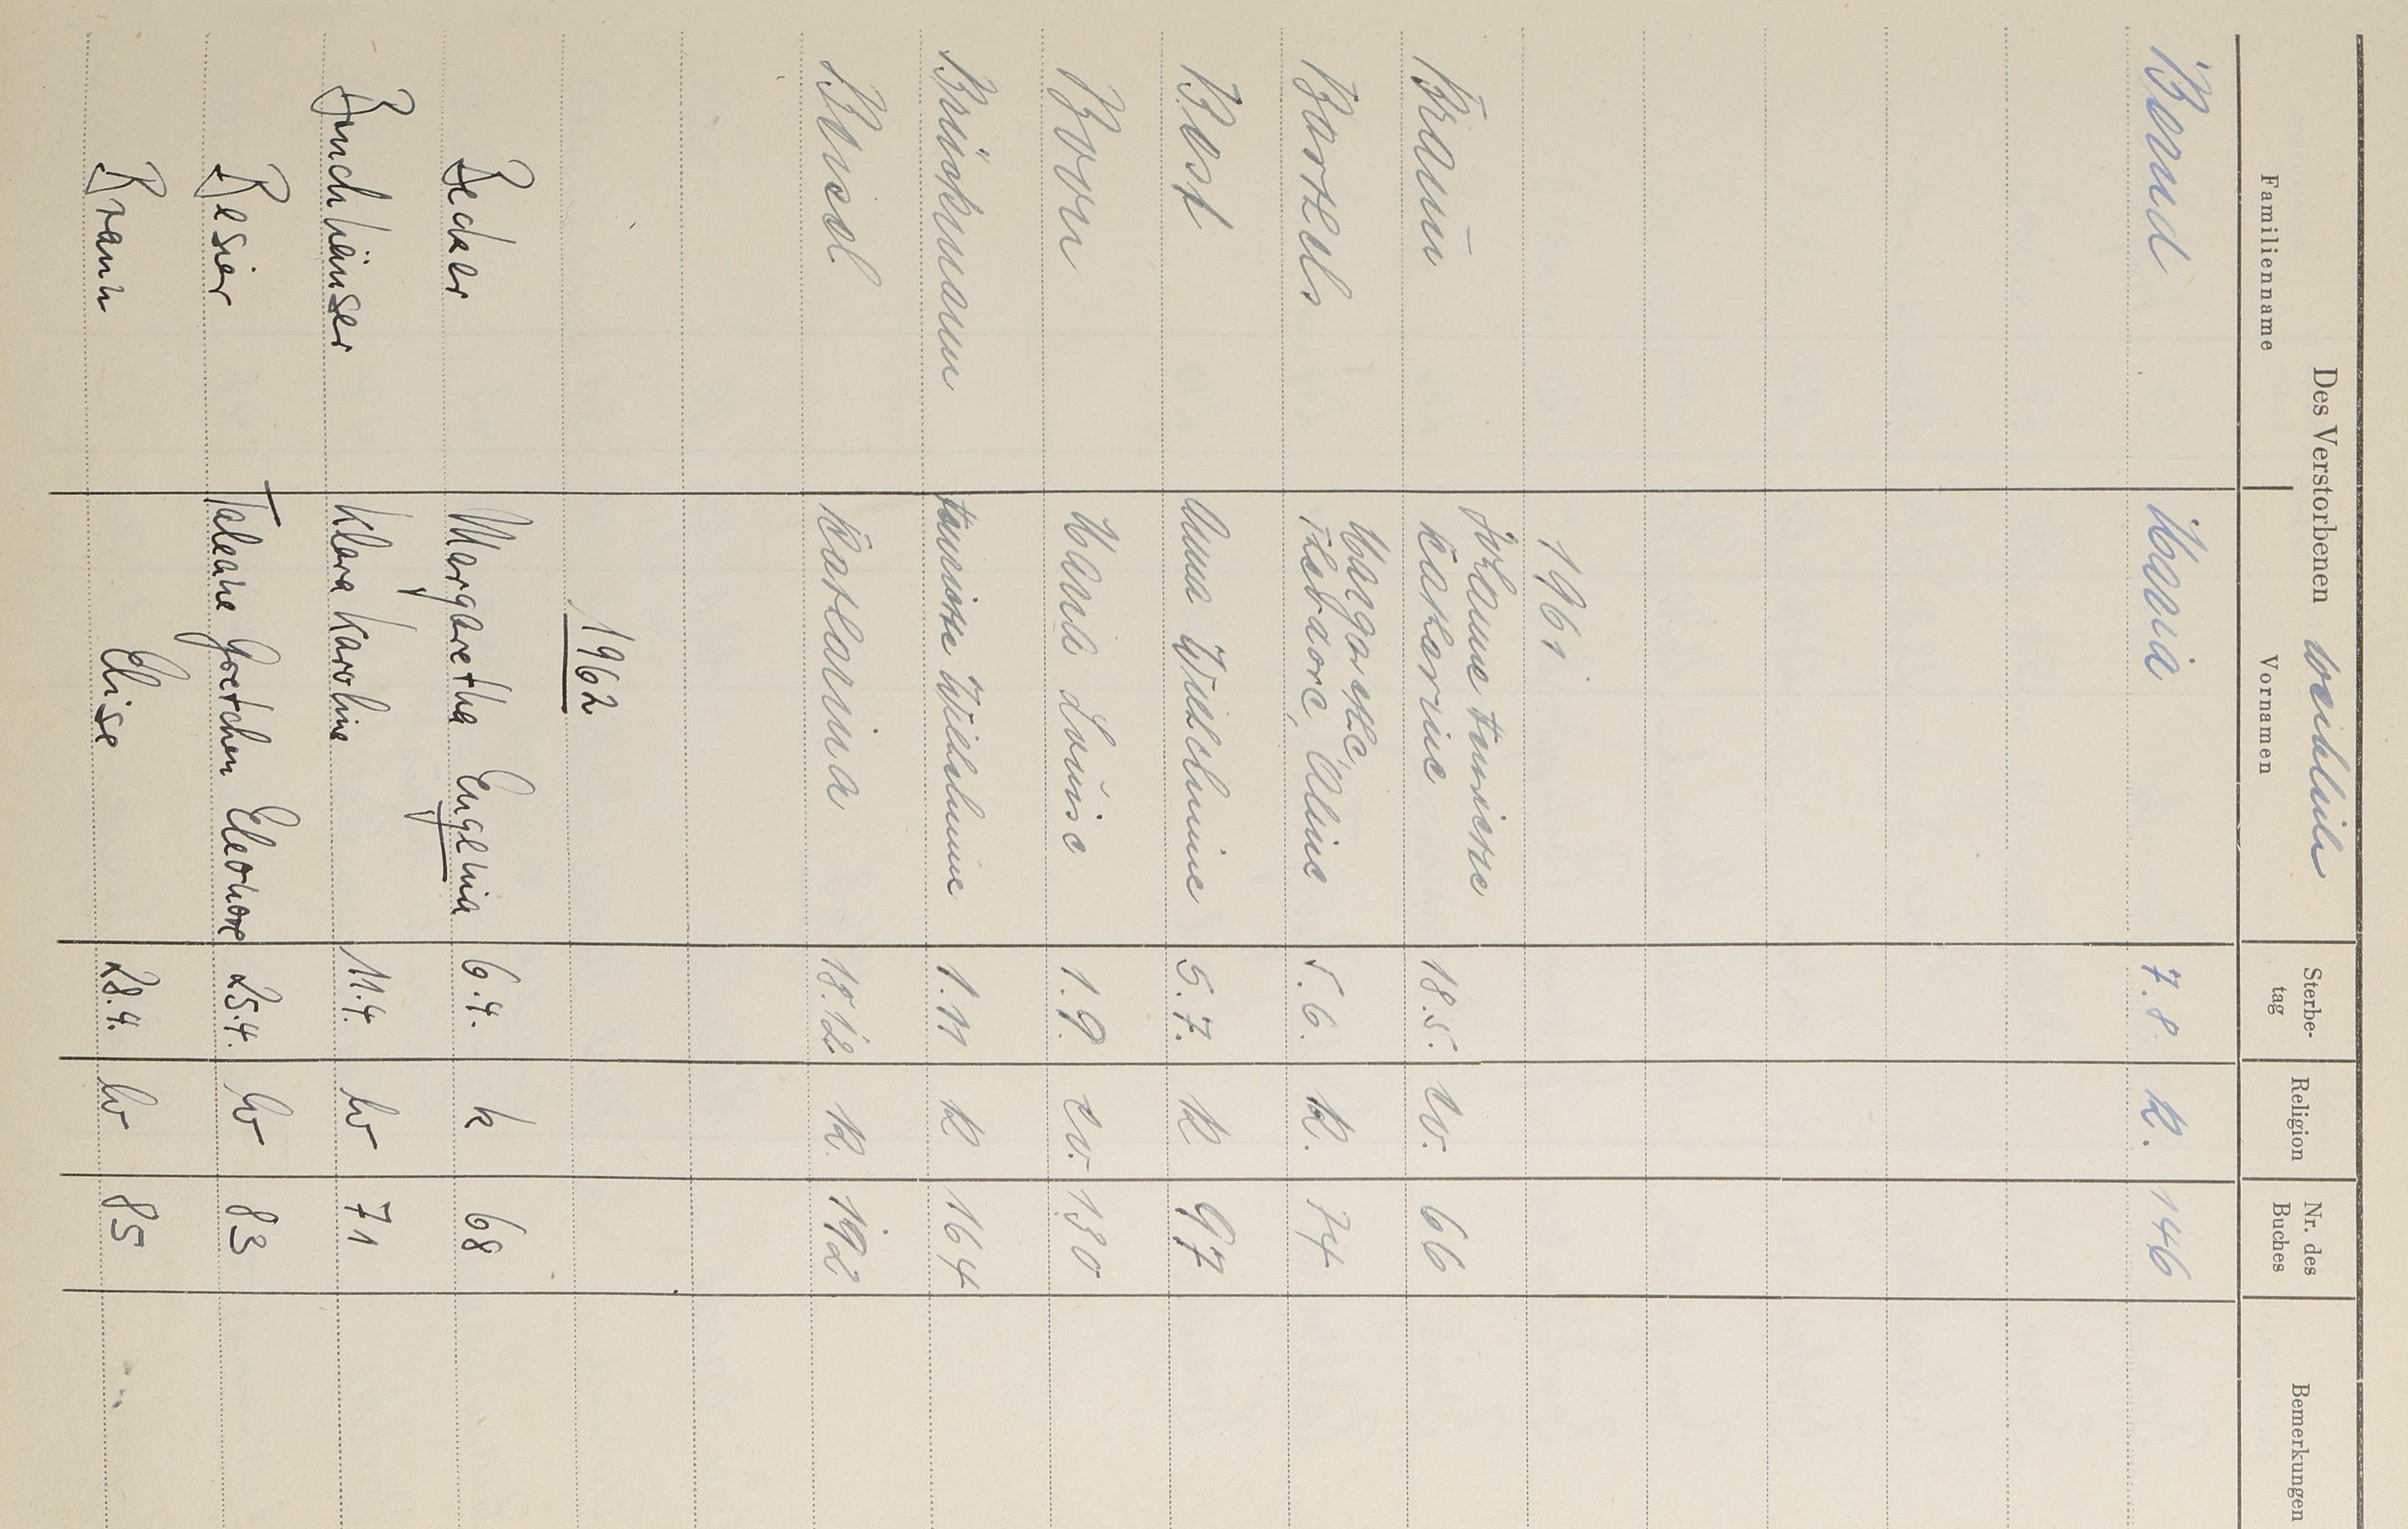 Des Verstorbenen weiblich
Familienname Vornamen Sterbe-tag Religion Nr. des Buches Bemerkungen
Maria 7.8. k. 146
1961
Johanne Henriette
Braun Katharine 18.5. ev. 66
Margarethe,
Bartels Theodore, Aline 5.6. k. 74
Best Anna Wilhelmine 5.7. k 97
Born Marie Louise 1.9. ev. 130
Brückmann Henriette Wilhelmine 1.11 k 164
Katharina 18.12. k. 192
1962
Becker Margaretha Eugenia 6.4. k 68
Buchhäuser Klara Karoline 11.4. ev 71
Besier Taleahe Gretchen Eleonore 25.4. ev 83
Braun Elise 28.4. ev 85